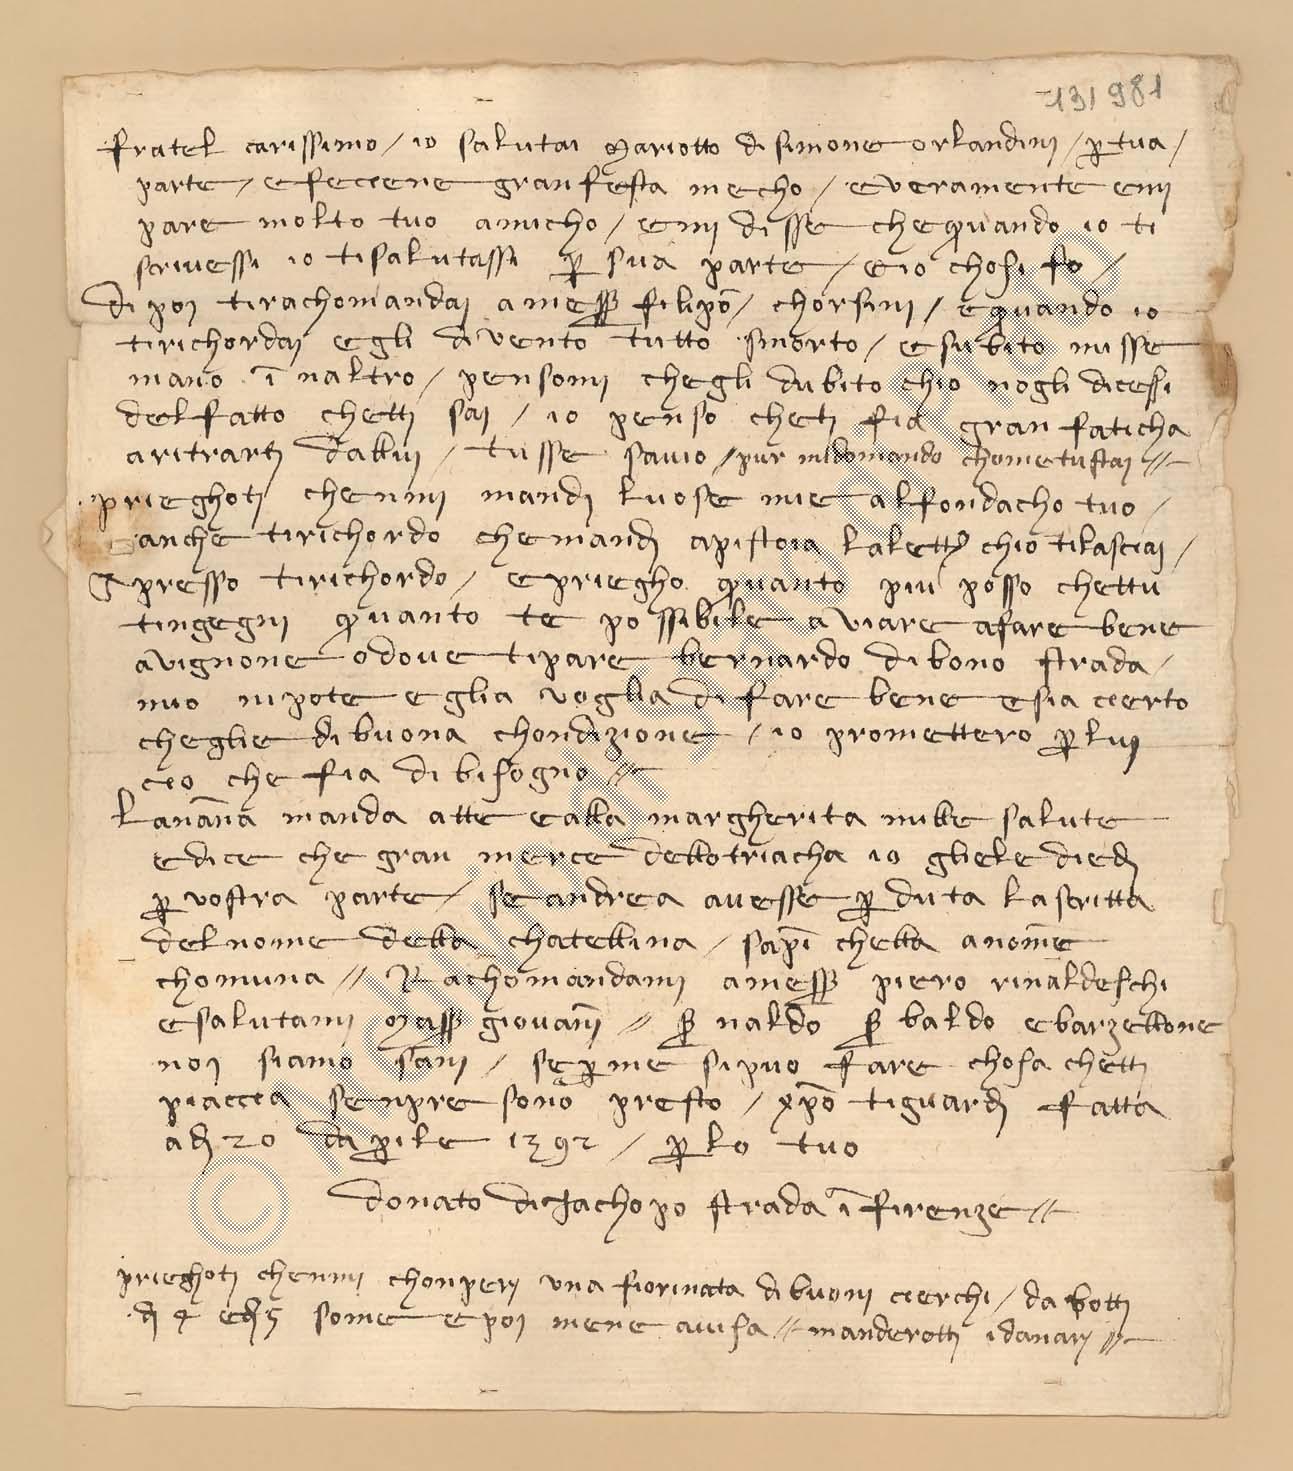 131 981
fratel carissimo / io salutai Mariotto di simone orlandini / p tua /
parte / e feccene gran festa mecho / e veramente emi
pare molto tuo amicho / emi disse che quando io ti
scrivessi io ti salutassi p sua parte / e io chosi fo /
di poi ti rachomandai a mess filipo / chorsini / e quando io
ti richordai egli divento tutto smorto / e subito misse
mano ī naltro / pensomi chegli dubito chio nogli dicessi
del fatto chetti sai / io penso cheti fia gran faticha
a ritrarti dallui / tu sse savio / pur mi domando chome tu stai //
prieghoti chenmi mandi luose mie al fondacho tuo /
anche ti richordo che mandi a pistoia la lettˀ chio ti lasciai /
Apresso ti richordo / e priegho quanto piu posso chettu
tingegni quanto te possibile aviare a fare bene
a vignone o dove ti pare bernardo di bono strada /
mio nipote eglia voglia di fare bene e sia cierto
cheglie di buona chondizione / io promettero p lui
cio che fia di bisogno //
Lanāna manda atte e alla margherita mille salute
e dice che gran merce dello triacha io gliele diedi
p vostra parte / se andrea avesse p duta la scritta
del nome della chatellina / sapī chella a nome
chomuna // Rachomandami a mess piero rinaldeschi
e salutami Mass giovanī // s naldo s baldo e barzellone
noi siamo sani / se p me si puo fare chosa chetti
piaccia senpre sono presto / xpō ti guardi fatta
a di 20 da pile 1392 / p lo tuo
donato di Jachopo strada ī firenze //
prieghoti chenmi chonperi una fiorinata di buoni cierchi / da botti
di 4 e di 5 some e poi mene avisa // manderotti i danari //
© Archivio di Stato di Prato